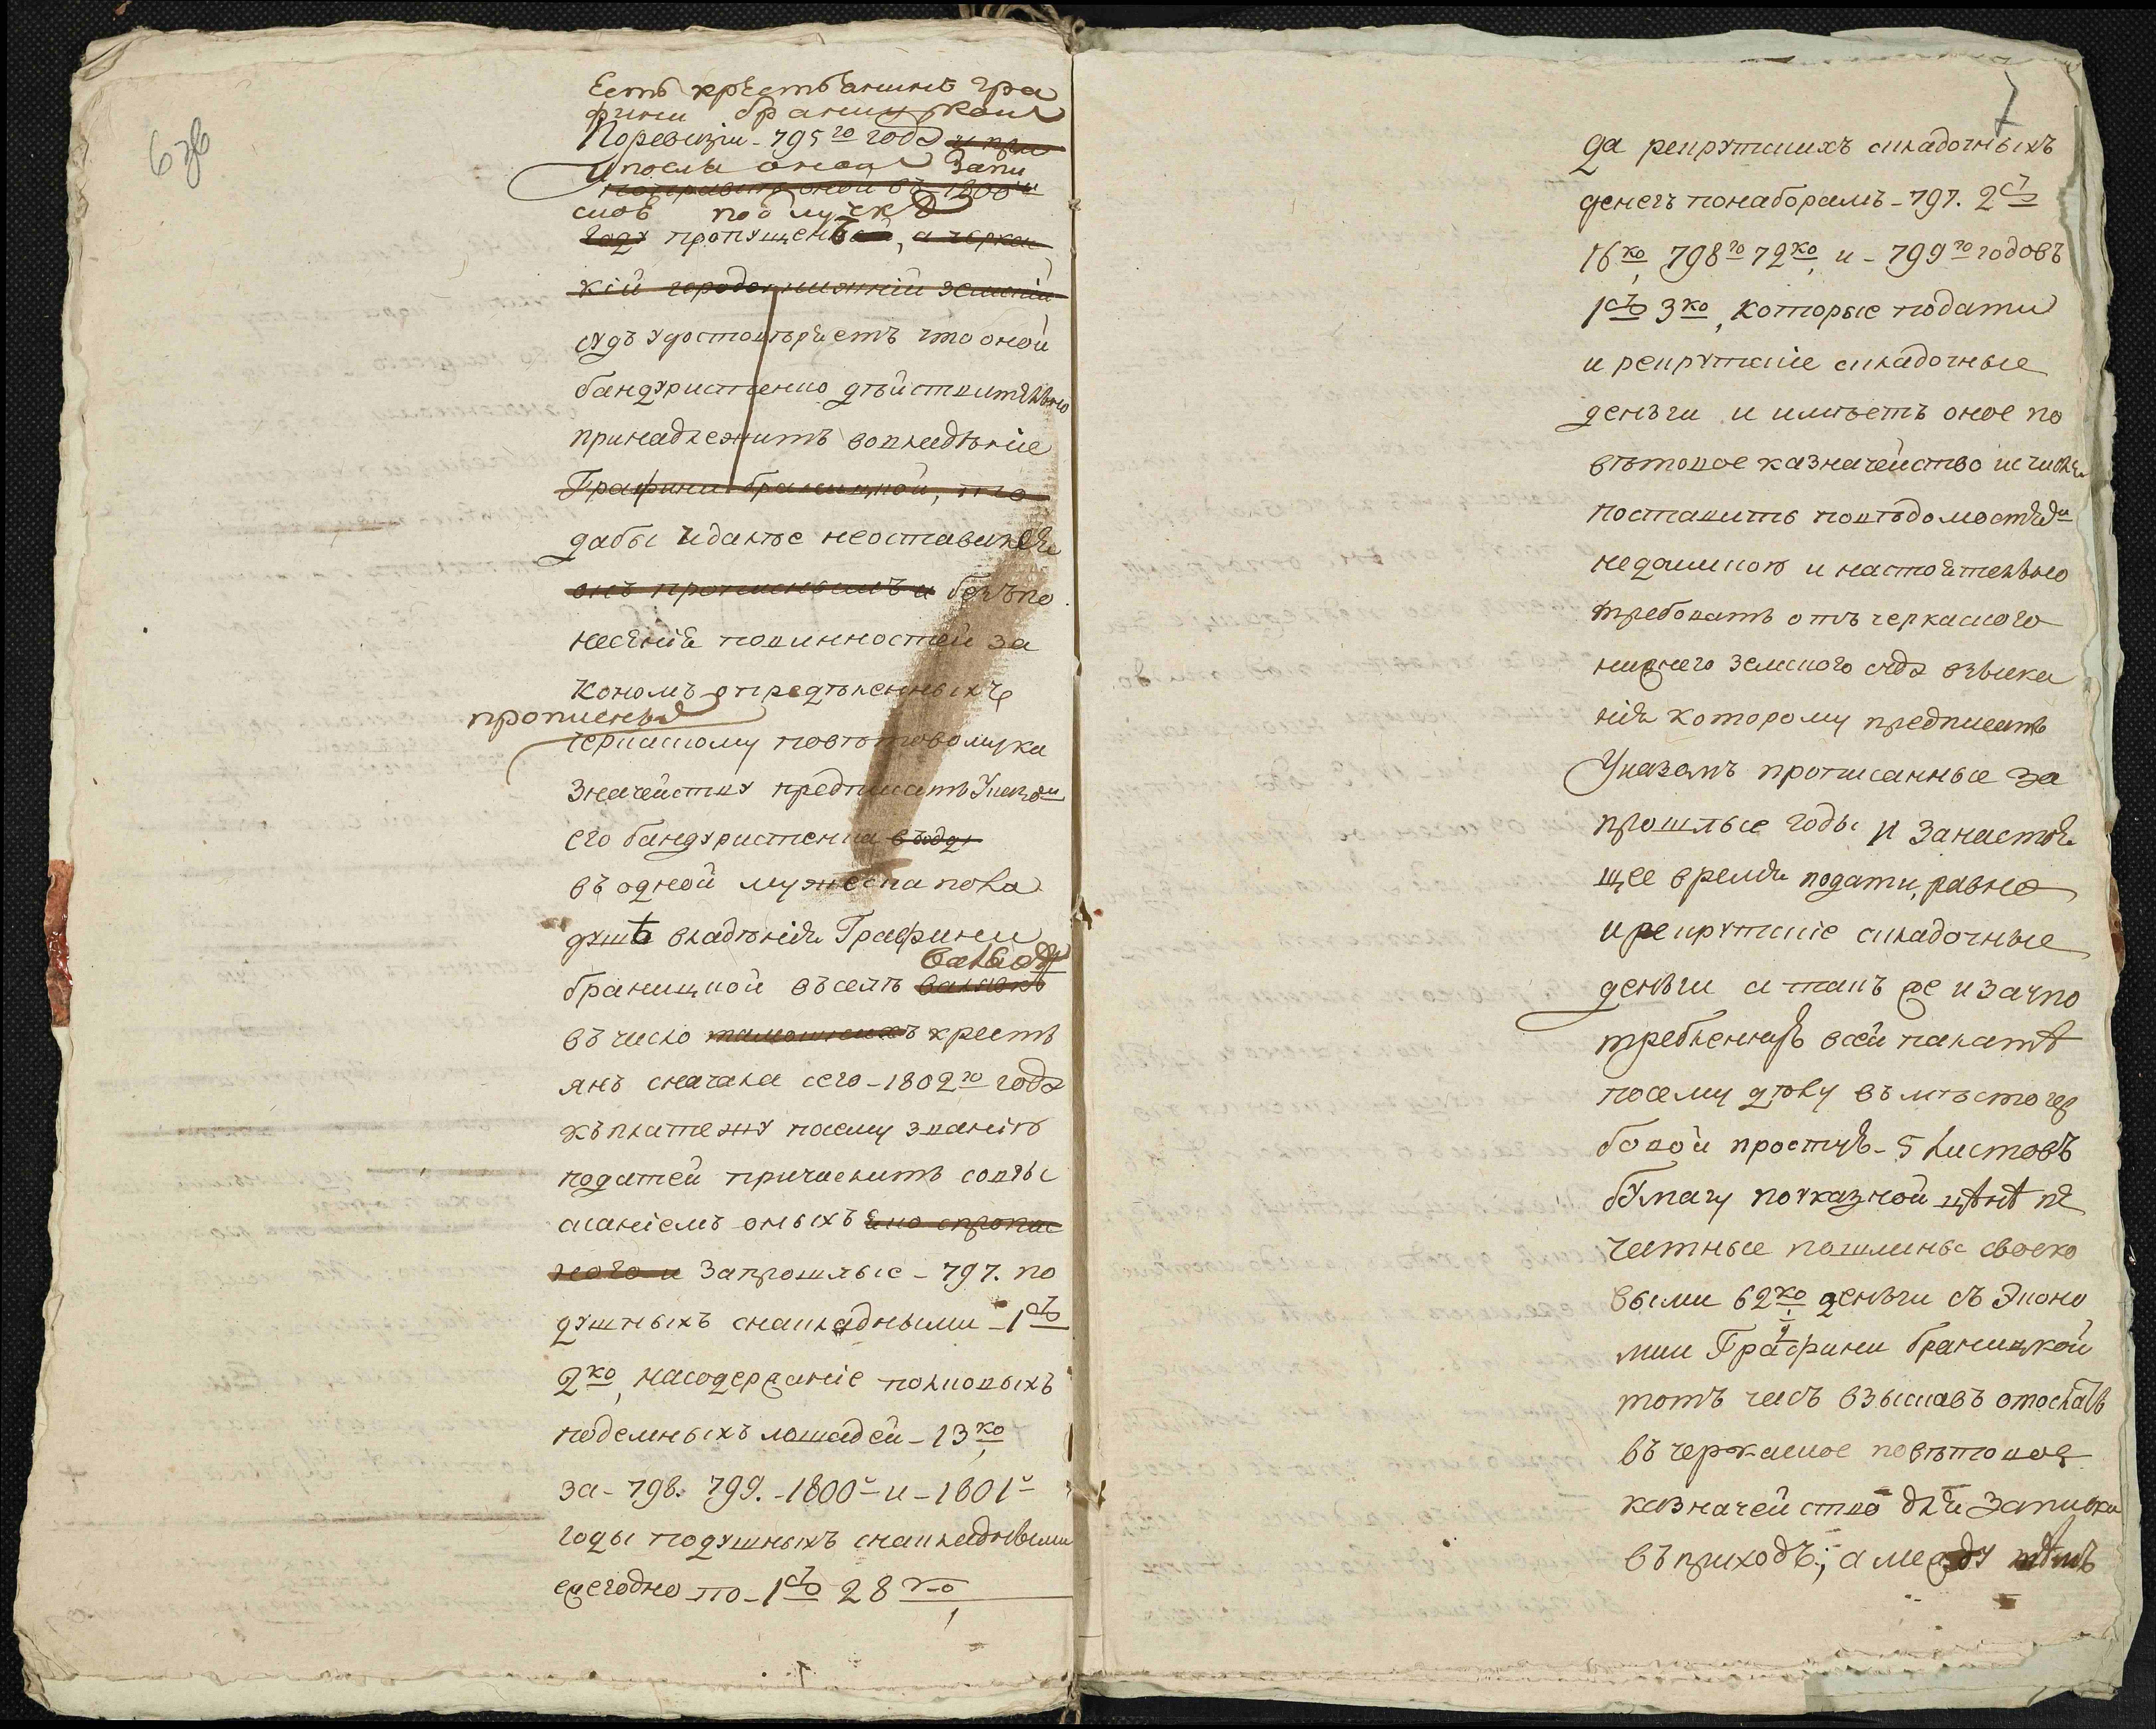 6 зв
Есть крестьянинъ гра
фини браницкой
По ревизіи - 795го года и при
и после оной запи
1800
сиоѣ
году пропущенъ, а черкас
кій городок нижній земскій
судъ удостоверяетъ что оной
бандуристенко действительно
принадлежитъ вовладѣніе
Графини браницкой, то
дабы и далѣе неоставался
онъ прописнымъ и безъ по
несенія повинностей за
кономъ определенныхъ
прописнья
черкаскому повѣтовому ка
значейству предписать Указомъ
его бандуристенка въ оду
въ одной мужеска пола
душѣ владѣнія Графини
браницкой въ селѣ
въ число тамошнихъ кресть
янъ сначала сего - 1802го года
къ платежу посему званію
податей причислить совзы
сканіемъ оныхъ
ного и Запрошлые - 797. по
душныхъ снакладными - 1ру
2ко, насодержаніе полковыхъ
подемныхъ лошадей - 13ко
за - 798. 799. - 1800й и - 1801й
годы подушныхъ снакладными
ежегодно по - 1ру 28ко
7
да рекрутскихъ складочныхъ
денегъ понаборамъ - 797. 2ру
16ко, 798го 72ко, и - 799го годовъ
1ру 3ко, которые подати
и рекрутскіе складочные
деньги и имѣетъ оное по
вѣтовое казначейство исчисля
поставить повѣдомостямъ
недоимкою и настоятельно
требовать отъ черкаского
нижнего земского суда взыска
нія которому предписать
Указомъ прописанные за
прошлые годы и Занастоя
щее время подати, равно
и рекрутскіе складочные
деньги а такъ же и заупо
требленную в сей палатѣ
посему дѣлу въ мѣсто гер
бовой простую - 5 листовъ
бумагу поуказной цѣнѣ пе
чатные пошлины своско
выми 62ко деньги съ Эконо
міи Графини браницкой
тотъ часъ взыскавъ отослать
въ черкаское повѣтовое
казначейство для Записки
въ приходъ; а между темъ